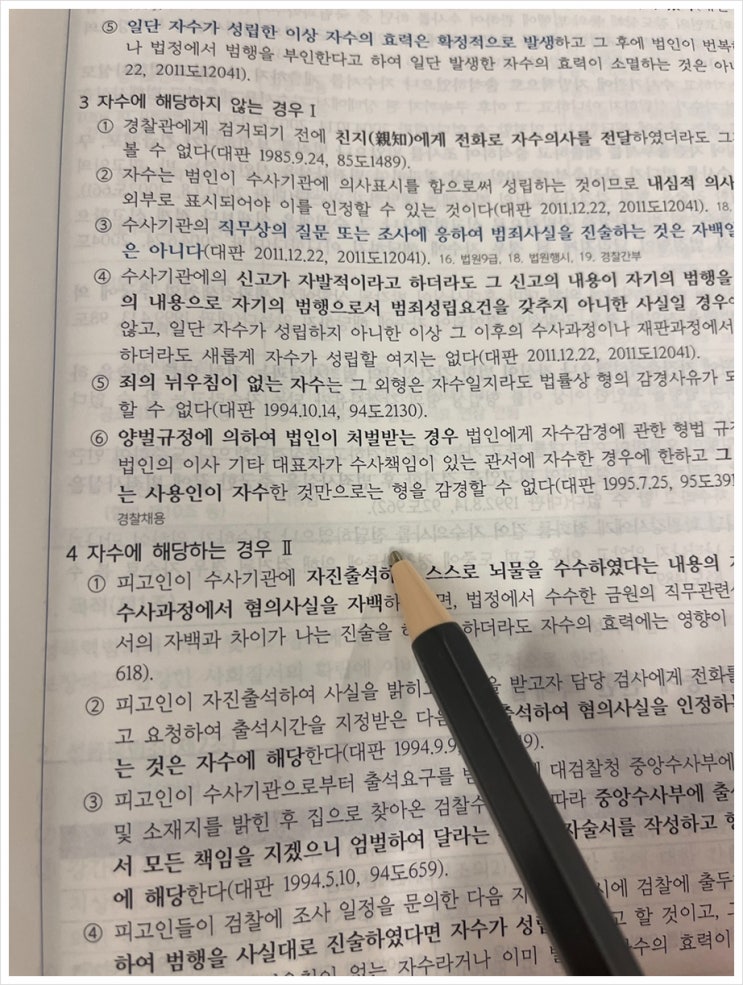 ⑤ 일단 자수가 성립한 이상 자수의 효력은 확정적으로 발생하고 그 후에 범인이 번복하
나 법정에서 범행을 부인한다고 하여 일단 발생한 자수의 효력이 소멸하는 것은 아니
22, 2011도12041).
3 자수에 해당하지 않는 경우 Ⅰ
① 경찰관에게 검거되기 전에 친지(親知)에게 전화로 자수의사를 전달하였더라도 그
볼 수 없다(대판 1985.9.24, 85도1489).
② 자수는 범인이 수사기관에 의사표시를 함으로써 성립하는 것이므로 내심적 의사
외부로 표시되어야 이를 인정할 수 있는 것이다(대판 2011.12.22, 2011도12041). 18.
③ 수사기관의 직무상의 질문 또는 조사에 응하여 범죄사실을 진술하는 것은 자백일
은 아니다(대판 2011.12.22, 2011도12041). 16. 법원9급, 18. 법원행시, 19. 경찰간부
④ 수사기관에의 신고가 자발적이라고 하더라도 그 신고의 내용이 자기의 범행을
의 내용으로 자기의 범행으로서 범죄성립요건을 갖추지 아니한 사실일 경우에
않고, 일단 자수가 성립하지 아니한 이상 그 이후의 수사과정이나 재판과정에서
하더라도 새롭게 자수가 성립할 여지는 없다(대판 2011.12.22, 2011도12041).
⑤ 죄의 뉘우침이 없는 자수는 그 외형은 자수일지라도 법률상 형의 감경사유가 되
할 수 없다(대판 1994.10.14, 94도2130).
⑥ 양벌규정에 의하여 법인이 처벌받는 경우 법인에게 자수감경에 관한 형법 규정
법인의 이사 기타 대표자가 수사책임이 있는 관서에 자수한 경우에 한하고 그
는 사용인이 자수한 것만으로는 형을 감경할 수 없다(대판 1995.7.25, 95도391
경찰채용
4 자수에 해당하는 경우 Ⅱ
① 피고인이 수사기관에 자진출석하 스스로 뇌물을 수수하였다는 내용의 자
수사과정에서 혐의사실을 자백하 면, 법정에서 수수한 금원의 직무관련
서의 자백과 차이가 나는 진술을 하더라도 자수의 효력에는 영향이
618).
② 피고인이 자진출석하여 사실을 밝히고 을 받고자 담당 검사에게 전화를
고 요청하여 출석시간을 지정받은 다음 출석하여 혐의사실을 인정하
는 것은 자수에 해당한다(대판 1994.9.9, 9).
③ 피고인이 수사기관으로부터 출석요구를 대검찰청 중앙수사부에
및 소재지를 밝힌 후 집으로 찾아온 검찰수 따라 중앙수사부에 출
서 모든 책임을 지겠으니 엄벌하여 달라는 자술서를 작성하고
에 해당한다(대판 1994.5.10, 94도659).
④ 피고인들이 검찰에 조사 일정을 문의한 다음 지 시에 검찰에 출두
하여 범행을 사실대로 진술하였다면 자수가 성 고 할 것이고, 그
없는 자수라거나 이미 자수의 효력이